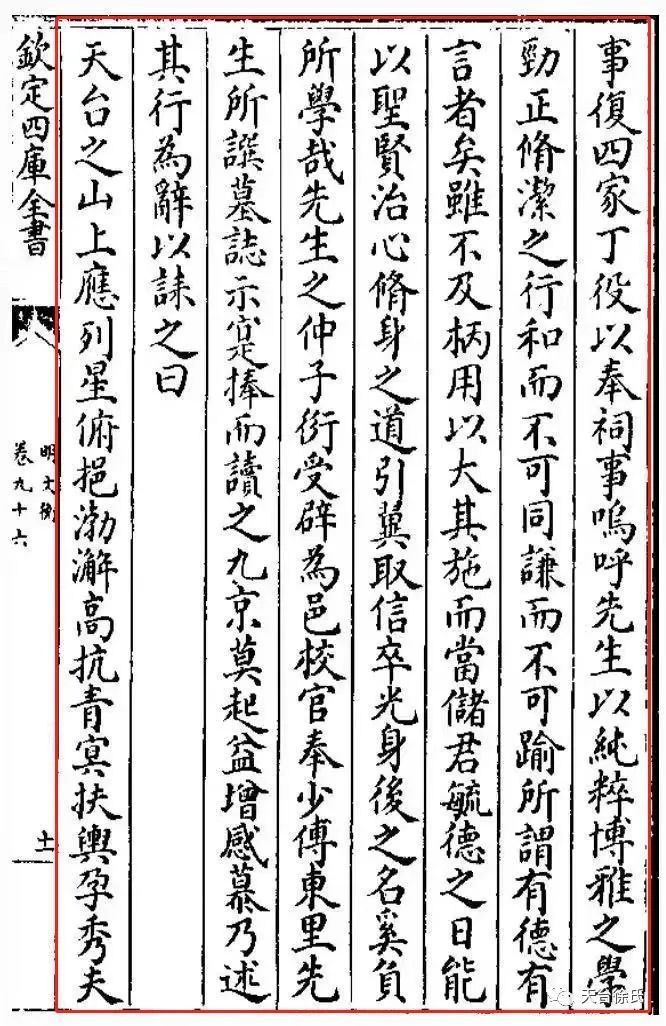 事復四家丁役以奉祠事嗚呼先生以純粹博雅之學
勁正脩潔之行和而不可同謙而不可踰所謂有德有
言者矣雖不及柄用以大其施而當儲君毓德之日能
以聖賢治心脩身之道引翼取信卒光身後之名奚負
所學哉先生之仲子衍受辟為邑校官奉少傅東里先
生所譔墓誌示寔捧而讀之九京莫起益增感慕乃述
其行為辭以誄之曰
天台之山上應列星俯挹渤澥高抗青冥扶輿孕秀夫
欽定四庫全書
明文衡
卷九十六
十
天台徐氏